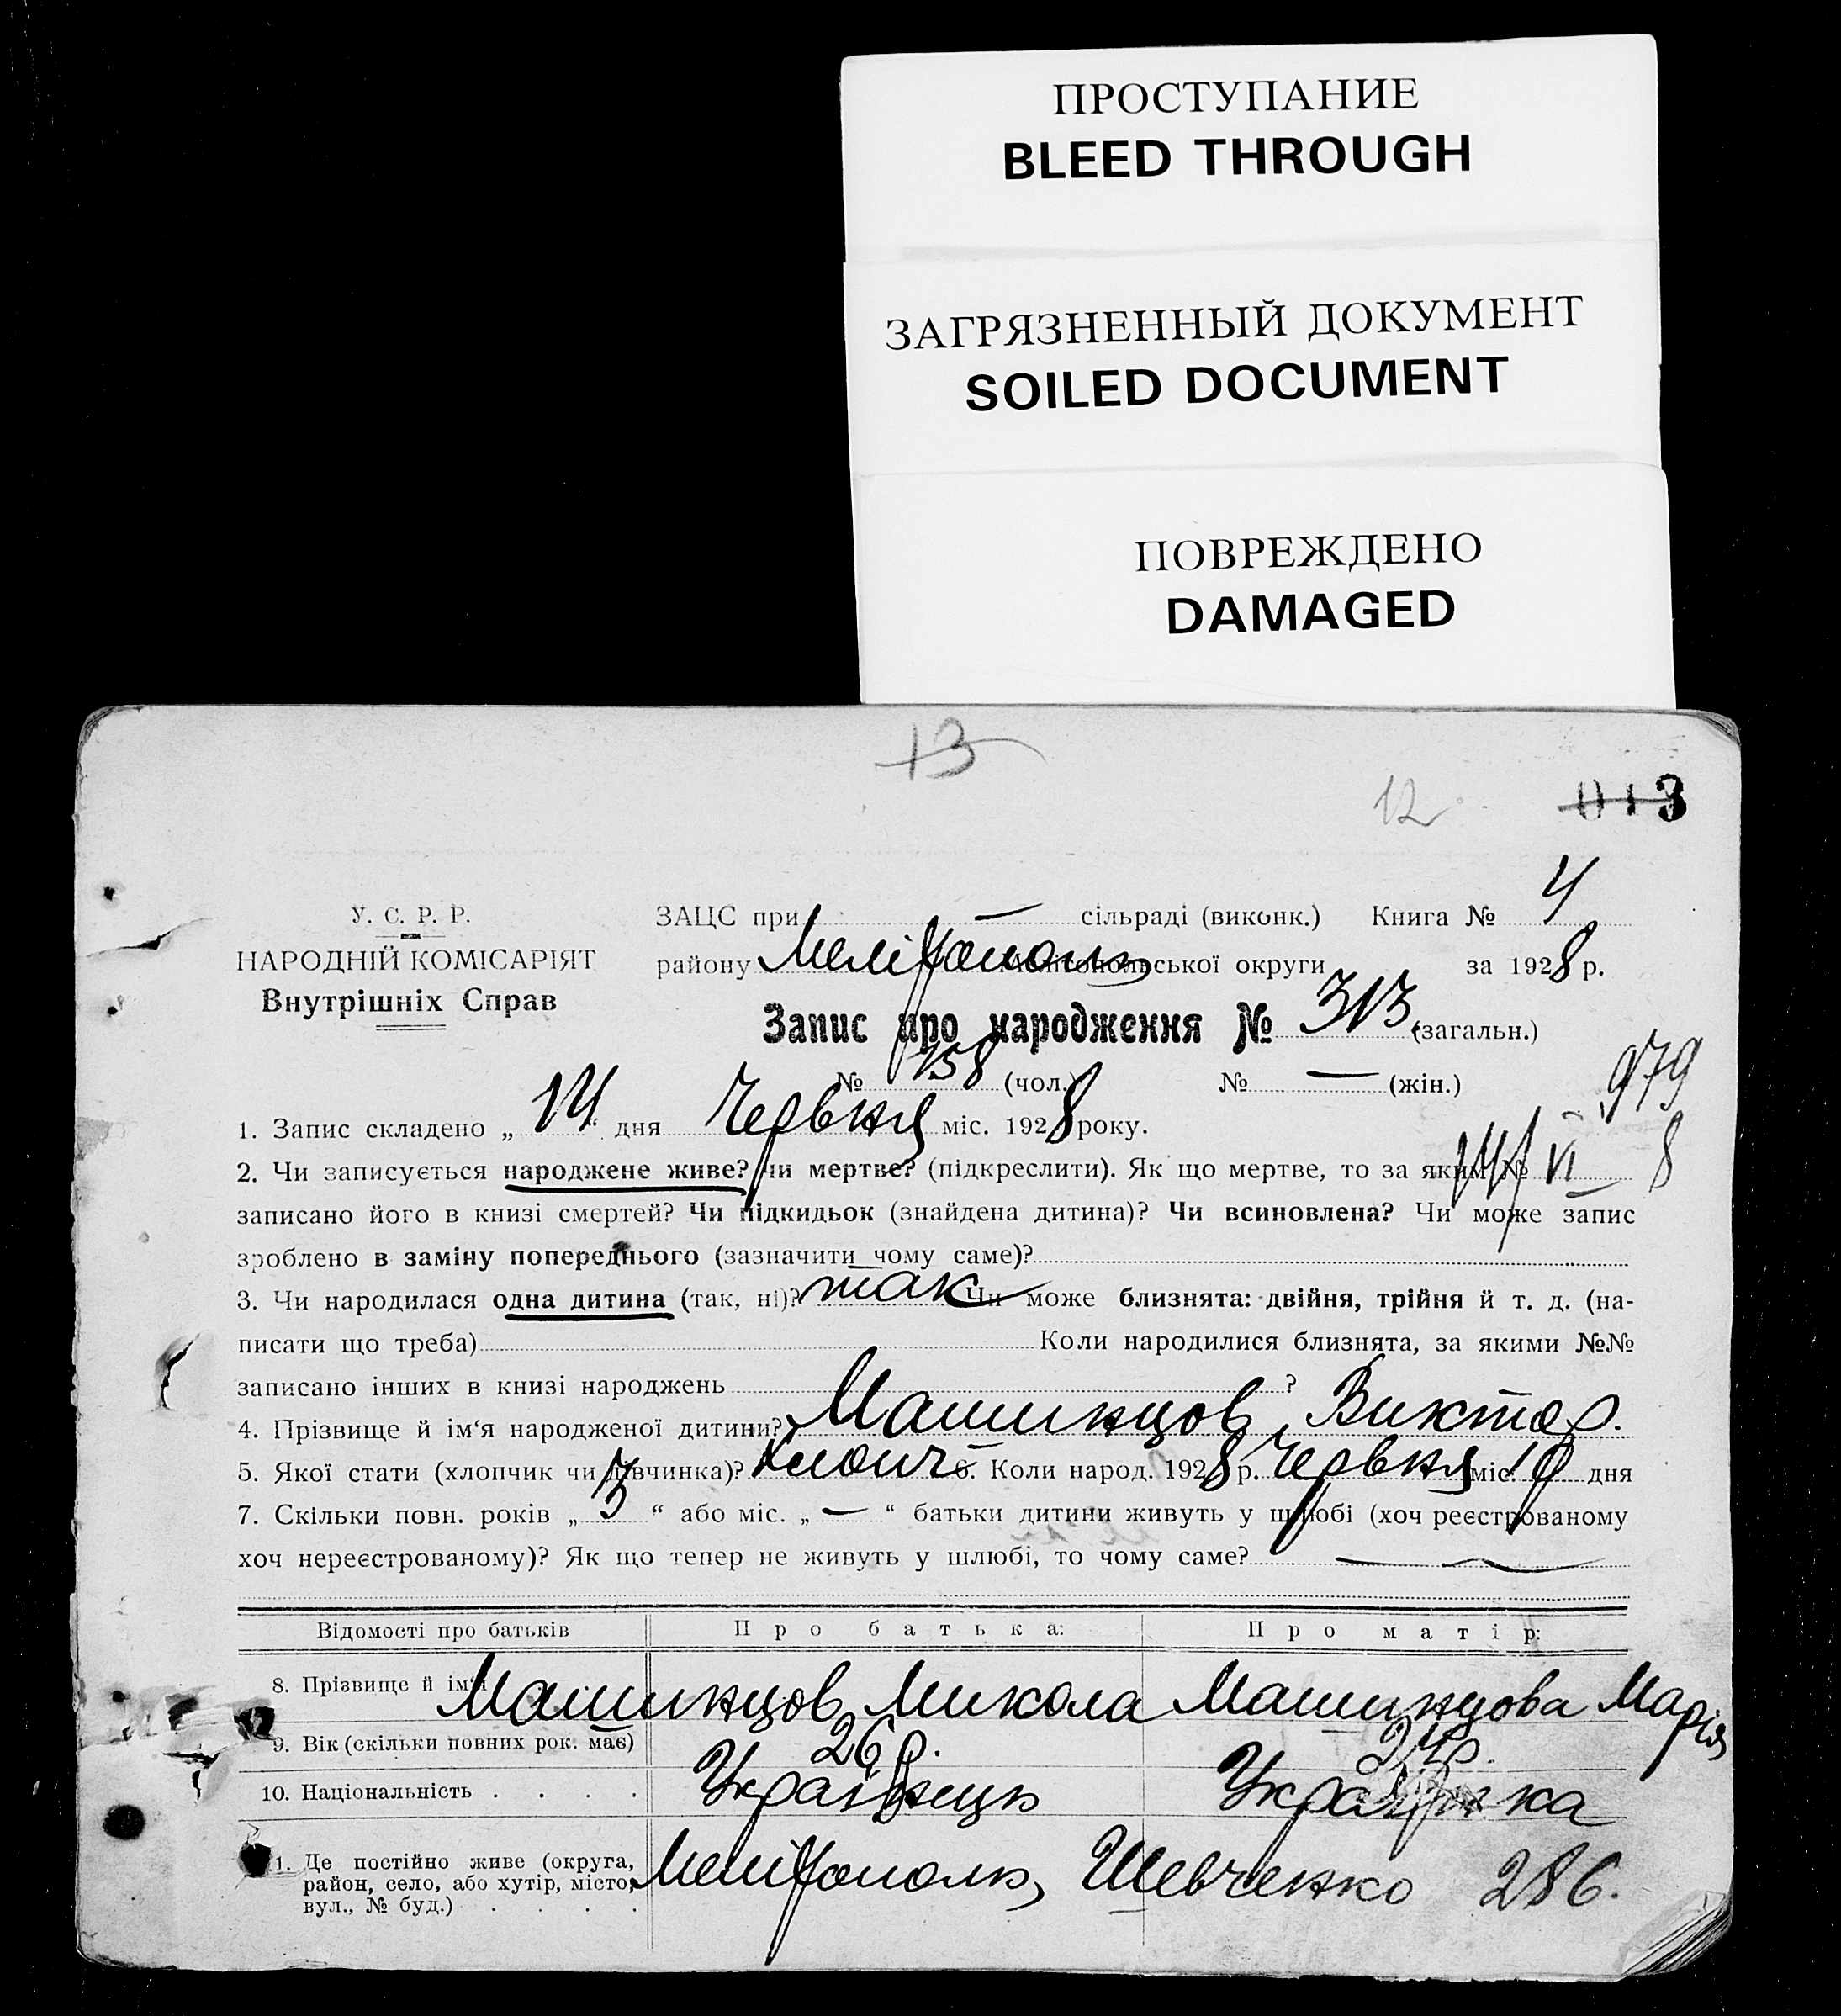 ПРОСТУПАНИЕ
BLEED THROUGH
ЗАГРЯЗНЕННЫЙ ДОКУМЕНТ
SOILED DOCUMENT
ПОВРЕЖДЕНО
DAMAGED
13
12 013
У. С. Р. Р. ЗАЦС при — сільраді (виконк.) Книга № 4
НАРОДНІЙ КОМІСАРІЯТ району Мелітополь Мелітопольської округи за 1928 р.
Внутрішніх Справ
Запис про народження № 313 (загальн.)
№ 158 (чол.) № — (жін.) 979
1. Запис складено „14“ дня Червня міс. 1928 року.
2. Чи записується народжене живе? чи мертве? (підкреслити). Як що мертве, то за яким № 14/VI 8
записано його в книзі смертей? Чи підкидьок (знайдена дитина)? Чи всиновлена? Чи може запис
зроблено в заміну попереднього (зазначити чому саме)?
3. Чи народилася одна дитина (так, ні)? так Чи може близнята: двійня, трійня й т. д. (на-
писати що треба) Коли народилися близнята, за якими №№
записано інших в книзі народжень ?
4. Прізвище й ім‘я народженої дитини? Машинцов Виктор.
5. Якої стати (хлопчик чи дівчинка)? хлопч. 6. Коли народ. 1928 р. Червня міс. 10 дня
7. Скільки повн. років „ 3 “ або міс. „ — “ батьки дитини живуть у шлюбі (хоч реєстрованому
хоч нереєстрованому)? Як що тепер не живуть у шлюбі, то чому саме? —
Відомості про батьків Про батька: Про матір:
8. Прізвище й ім‘я Машинцов Микола Машинцова Марія
9. Вік (скільки повних рок. має) 26 р. 24 р.
10. Національність . . . . Українець Українка
11. Де постійно живе (округа, район, село, або хутір, місто, вул., № буд.) . . . . Мелітополь, Шевченко 286.